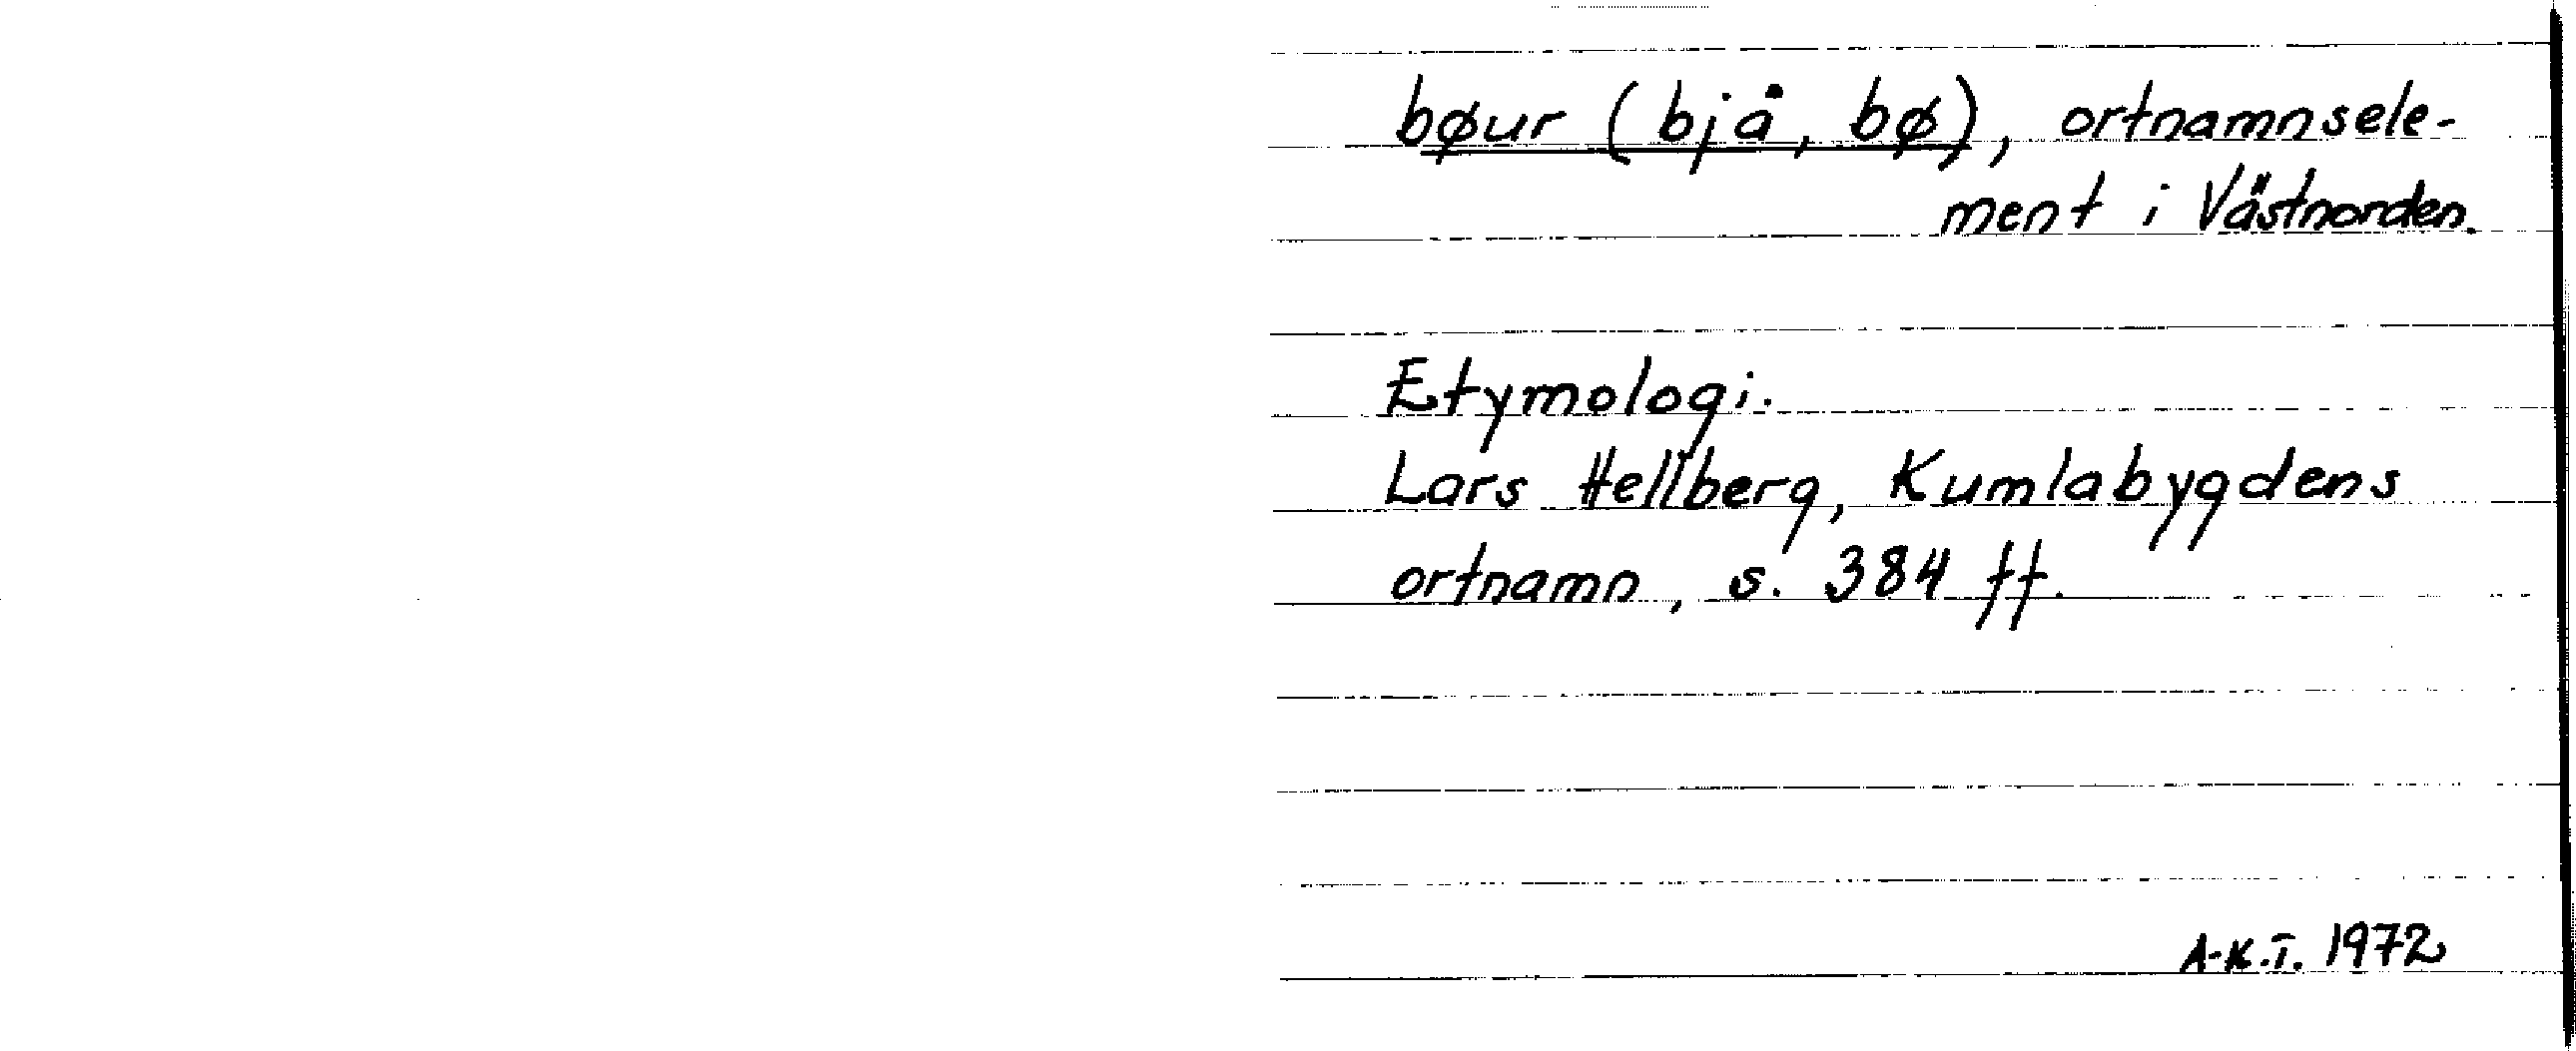 bøur (bjå, bø), ortnamnsele-
ment i Västnorden.
Etymologi.
Lars Hellberg, Kumlabygdens
ortnamn, s. 384 ff.
A-K.T. 1972